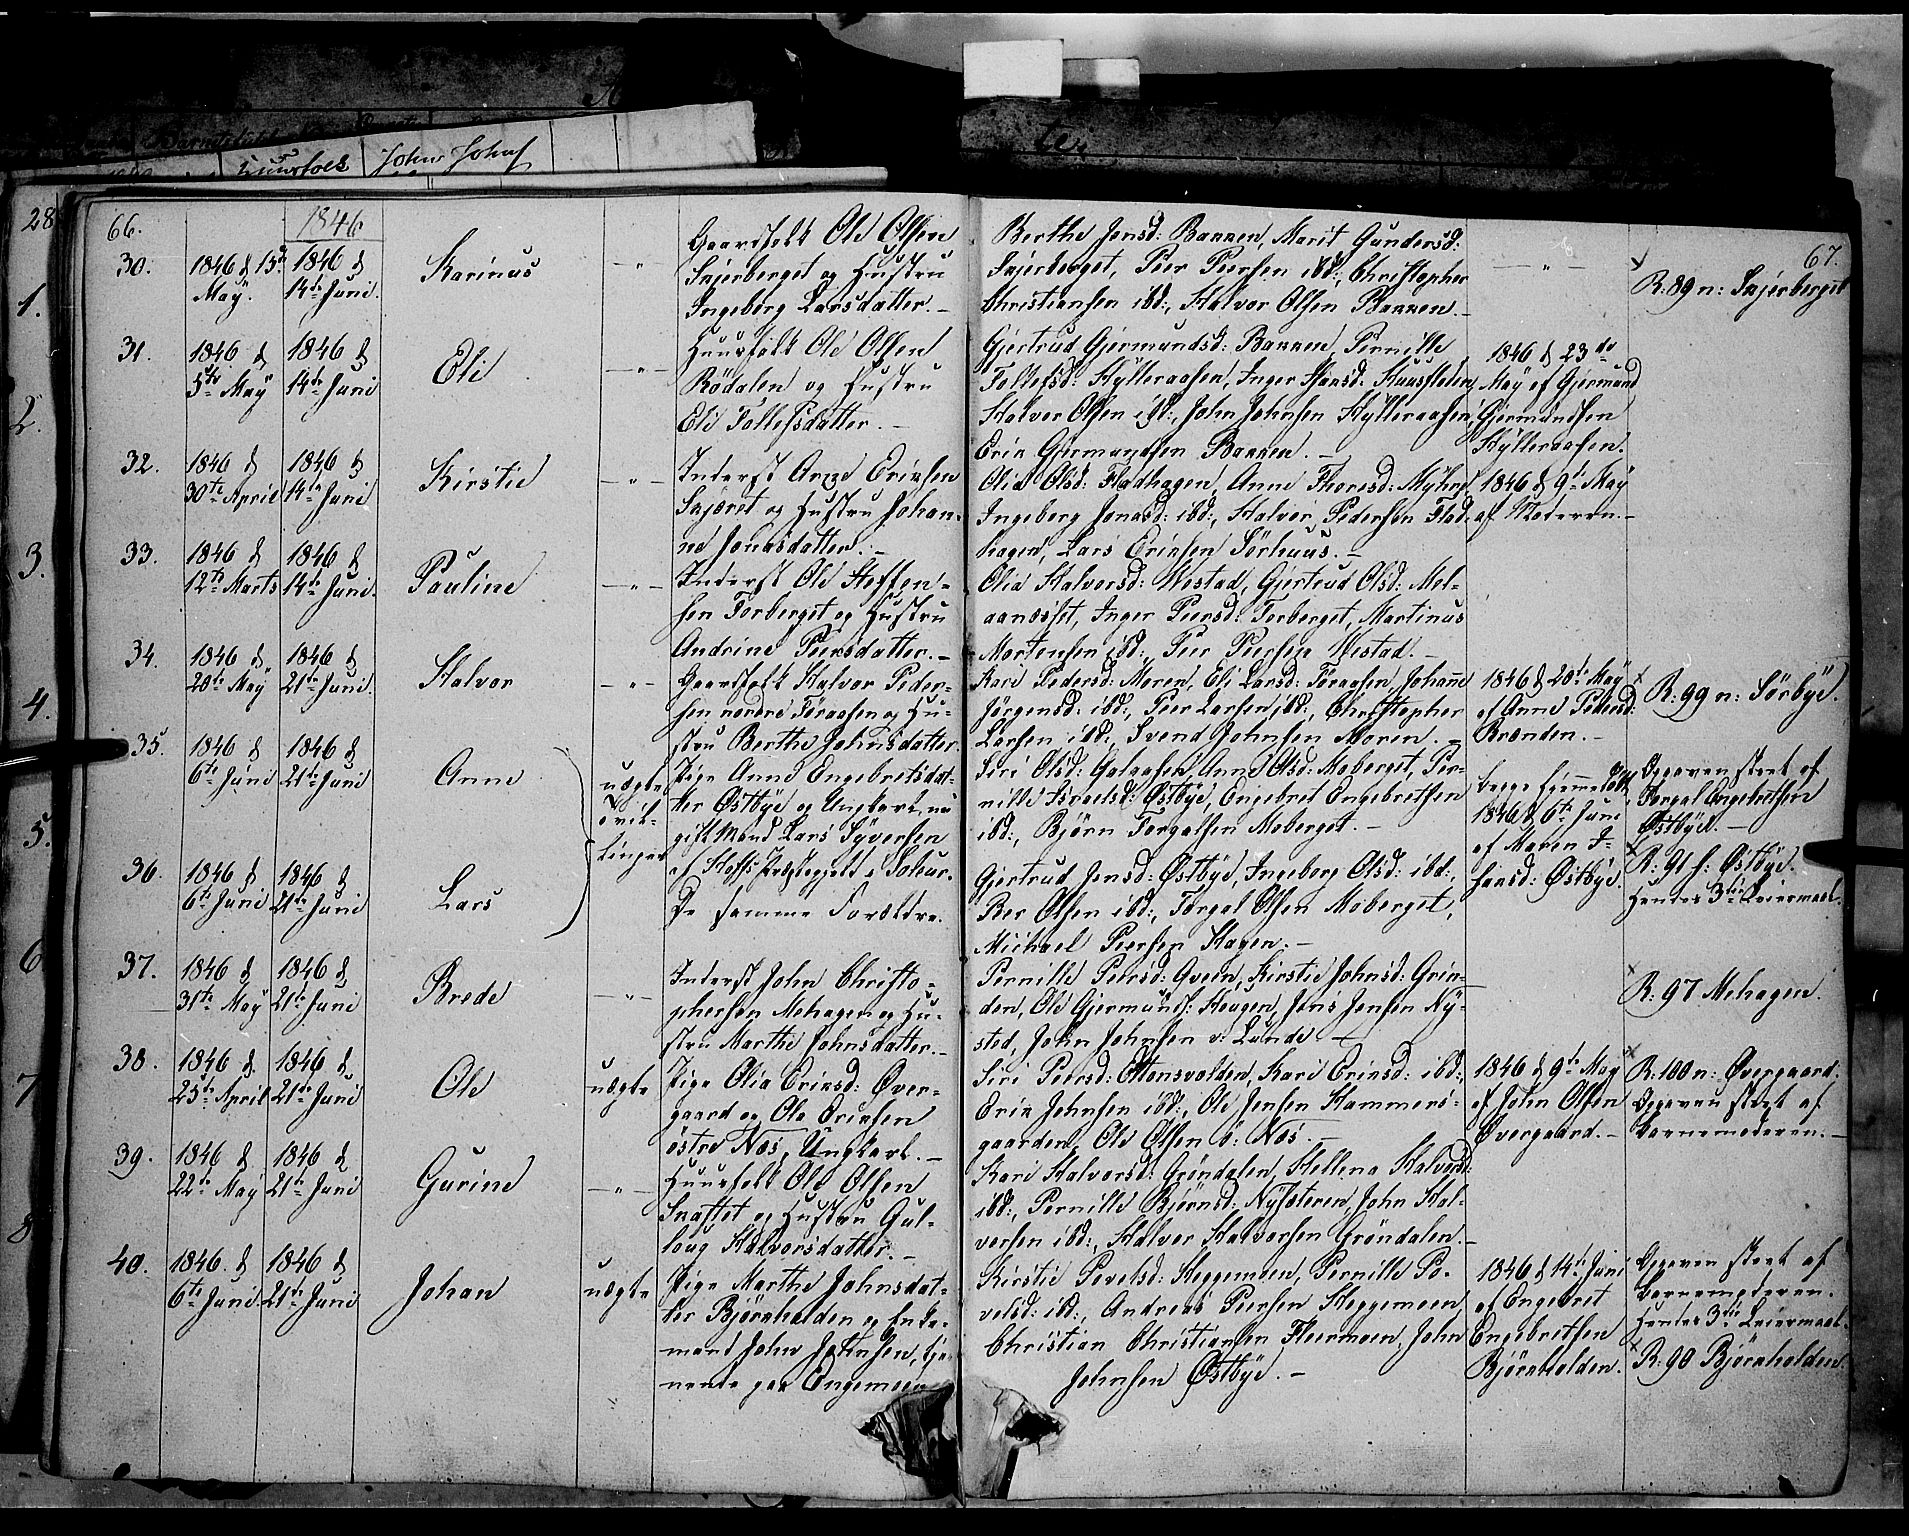 66.
1846
67.
30.
1846 d 15de May.
1846 d 14de Juni.
Karinus
Gaardfolk Ole Olsen
Skjerberget og Hustru
Ingeborg Larsdatter. –
Berthe Jensd: Bakken, Marit Gundersd:
Skjerberget, Peer Peersen ibd:, Christopher
Christiansen ibd:, Halvor Olsen Bakken. –
R: 89 n: Skjerberget
31.
1846 d 5te May
1846 d 14de Juni
Eli
Huusfolk Ole Olsen
Rödalen og Hustru
Eli Tollefsdatter. –
Gjertrud Gjermundsd: Bakken, Pernille
Tollefsd: Hylleraasen, Inger Hansd: Huusfloten,
Halvor Olsen ibd:, John Johnsen Hylleraasen,
Erik Gjermundsen Bakken. –
1846 d 23de
May af Gjermund
Gjermundsen
Hylleraasen.
32.
1846 d 30te April
1846 d 14de Juni
Kirstie
Inderst Arne Eriksen
Skjæret og Hustru Johan-
ne Jonasdatter. –
Olia Olsd: Fladhagen, Anne Thoresd: Myhre,
Ingeborg Jonasd: ibd:, Halvor Pedersen Flad-
hagen, Lars Eriksen Sörhuus. –
1846 d 9de May
af Moderen. –
33.
1846 d 12te Marts
1846 d 14de Juni.
Pauline
Inderst Ole Steffen-
sen Torberget og Hustru
Andrine Peersdatter. –
Olia Halvorsd: Westad, Gjertrud Olsd: Mel-
aanæsset, Inger Peersd: Torberget, Martinus
Mortensen ibd:, Peer Peersen Westad. –
34.
1846 d 20de May
1846 d 21de Juni.
Halvor
Gaardfolk Halvor Peder-
sen nordre Föraasen og Hu-
stru Berthe Johnsdatter.
Kari Pedersd: Moren, Eli Larsd: Föraasen, Johanne
Jörgensd: ibd:, Peer Larsen ibd:, Christopher
Larsen ibd:, Svend Johnsen Moren. –
1846 d 20de May
af Anne Pedersd:
Brenden. –
R: 99 n: Sörbye.
35.
1846 d 6te Juni
1846 d 21de Juni
Anne
uægte
Tvil-
linger
Pige Anne Engebretsdat-
ter Østbye og Ungkarl, nu
gift Mand Lars Syversen
af Hoffs Præstegjeld i Soleur.
Siri Olsd: Galaasen, Anne Olsd: Moberget, Per-
nille Israelsd: Østbye, Engebret Engebretsen
ibd:, Björn Torgalsen Moberget. –
begge hjemmedöbt
1846 d 6te Juni
af Maren J-
hansd: Østbye.
Opgaven skeet af
Torgal Engebretsen
Østbye. –
36.
1846 d 6te Juni
1846 d 21de Juni
Lars
De samme Forældre.
Gjertrud Jensd: Østbye, Ingeborg Olsd: ibd:,
Peer Olsen ibd:, Torgal Olsen Moberget,
Michael Peersen Hagen. –
R: 91 f: Østbye.
Hendes 3die Leiermaal.
37.
1846 d 31te May
1846 d 21de Juni
Brede
Inderst John Christo-
phersen Mehagen og Hu-
stru Marthe Johnsdatter. –
Pernille Peersd: Qveen, Kirstie Johnsd: Grin-
den, Ole Gjermunds: Haugen, Jens Jensen Ny-
sted, John Johnsen v: Lunde –
R: 97 Mehagen.
38.
1846 d 25de April
1846 d 21de Juni
Ole
uægte
Pige Olia Eriksd: Øver-
gaard og Ole Eriksen
östre Næs, Ungkarl. –
Siri Peersd: Ottonsvolden, Kari Eriksd: ibd:,
Erik Johnsen ibd:, Ole Jensen Hammers-
gaarden, Ole Olsen ö: Næs. –
1846 d 9de May
af John Olsen
Øvergaard. –
R: 100 n: Øvergaard:
Opgaven skeet af
Barnemoderen. –
39.
1846 d 22de May
1846 d 21de Juni
Gurine
Huusfolk Ole Olsen
Skaftet og Hustru Gul-
loug Halvorsdatter. –
Kari Halvorsd: Gröndalen, Hellena Halvorsd:
ibd:, Pernille Björnsd: Nysæteren, John Hal-
vorsen ibd:, Halvor Halvorsen Gröndalen. –
40.
1846 d 6te Juni
1846 d 21de Juni
Johan
uægte
Pige Marthe Johnsdat-
ter Björnholden og Enke-
mand John Johnsen, tje-
nende paa Engemoen
Kirstie Povelsd: Heggemoen, Pernille Po-
velsd: ibd:, Andreas Peersen Heggemoen,
Christian Christiansen Flermoen, John
Johnsen Østbye. –
1846 d 14de Juni
af Engebret
Engebretsen
Björnholden.
Opgaven skeet af
Barnemoderen.
Hendes 3die Leiermaal.
R: 90 Björnholden.
28
1.
2.
3.
4.
5.
6
7
8